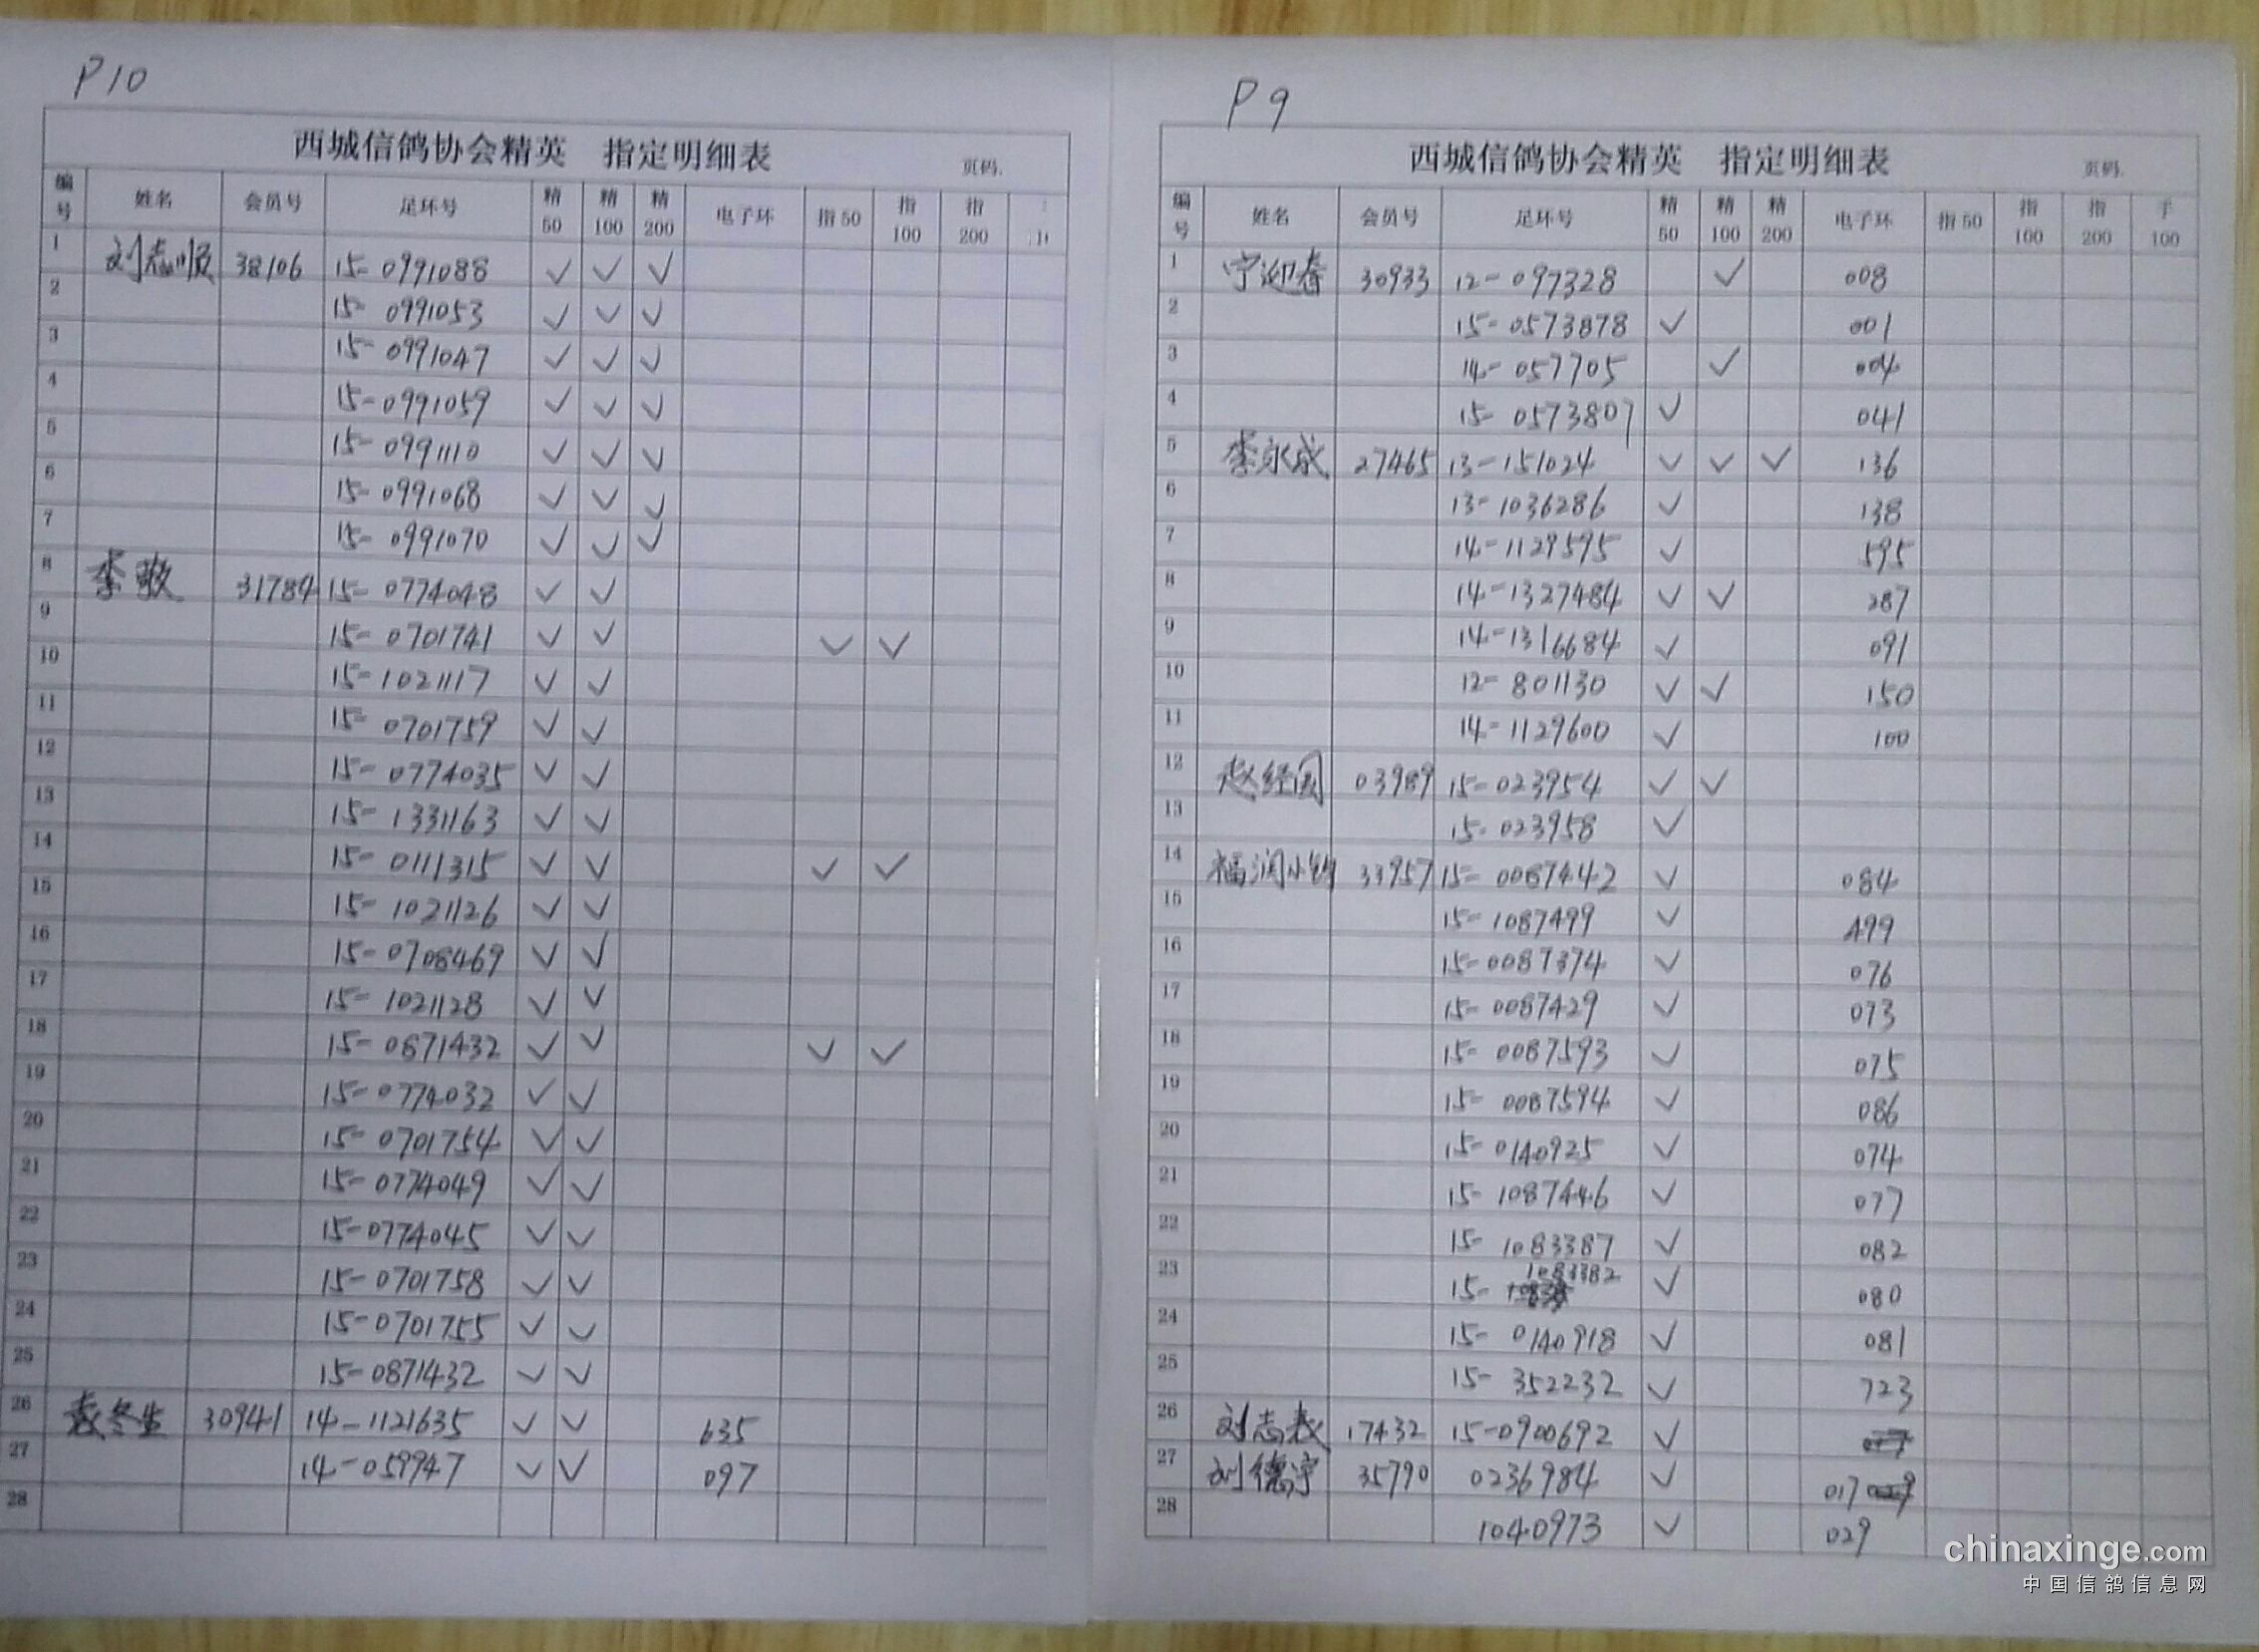 P10
西城信鸽协会精英 指定明细表 页码.
编号 姓名 会员号 足环号 精50 精100 精200 电子环 指50 指100 指200
1 刘志顺 38106 15-0991088 ✓ ✓ ✓
2 15-0991053 ✓ ✓ ✓
3 15-0991047 ✓ ✓ ✓
4 15-0991059 ✓ ✓ ✓
5 15-0991110 ✓ ✓ ✓
6 15-0991068 ✓ ✓ ✓
7 15-0991070 ✓ ✓ ✓
8 李敬 31784 15-0774048 ✓ ✓
9 15-0701741 ✓ ✓ ✓ ✓
10 15-1021117 ✓ ✓
11 15-0701759 ✓ ✓
12 15-0774035 ✓ ✓
13 15-1331163 ✓ ✓
14 15-0111315 ✓ ✓ ✓ ✓
15 15-1021126 ✓ ✓
16 15-0708469 ✓ ✓
17 15-1021128 ✓ ✓
18 15-0871432 ✓ ✓ ✓ ✓
19 15-0774032 ✓ ✓
20 15-0701754 ✓ ✓
21 15-0774049 ✓ ✓
22 15-0774045 ✓ ✓
23 15-0701758 ✓ ✓
24 15-0701755 ✓ ✓
25 15-0871432 ✓ ✓
26 袁冬生 30941 14-1121635 ✓ ✓ 635
27 14-059947 ✓ ✓ 097
28
P9
西城信鸽协会精英 指定明细表 页码.
编号 姓名 会员号 足环号 精50 精100 精200 电子环 指50 指100 指200 手100
1 宁迎春 30933 12-097328 ✓ 008
2 15-0573878 ✓ 001
3 14-057705 ✓ 004
4 15-0573807 ✓ 041
5 李永成 27465 13-151024 ✓ ✓ ✓ 136
6 13-1036286 ✓ 138
7 14-1129595 ✓ 595
8 14-1327484 ✓ ✓ 287
9 14-1316684 ✓ 091
10 12-801130 ✓ ✓ 150
11 14-1129600 ✓ 100
12 赵经国 03989 15-023954 ✓ ✓
13 15-023958 ✓
14 福润小 33957 15-0087442 ✓ 084
15 15-1087499 ✓ 499
16 15-0087374 ✓ 076
17 15-0087429 ✓ 073
18 15-0087593 ✓ 075
19 15-0087594 ✓ 086
20 15-0140925 ✓ 074
21 15-1087446 ✓ 077
22 15-1083387 ✓ 082
23 15-1083382 ✓ 080
24 15-0140918 ✓ 081
25 15-352232 ✓ 723
26 刘志 17432 15-0900692 ✓
27 刘德宇 35790 0236984 ✓ 017
28 1040973 ✓ 029
chinaxinge.com
中国信鸽信息网